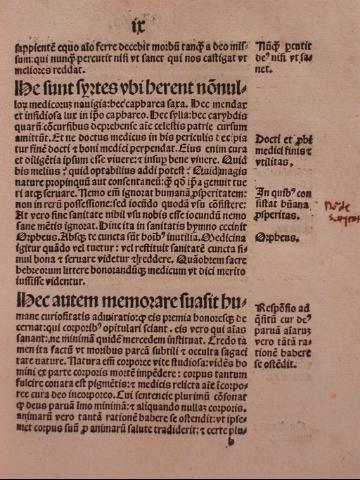 ix
sapientẽ equo aĩo ferre decebit morbũ tanqᷓ a deo mis-
sum: qui nunqᷓ percutit nisi vt sanet qui nos castigat vt
meliores reddat.
Hec sunt syrtes vbi herent nõnul-
loꝝ medicoruꝫ nauigia: hec capharea saxa. Hec mendax
et insidiosa lux in ipo caphareo. Hec sylla: hec carybdis
quarũ cõcursibus deprehense aĩe celestis patrie cursum
amittũt. Et ne doctus medicus in his periculis et
tur finẽ docti & boni medici perpendat. Eius enim cura
et diligẽtia ipsum esse viuere: & insup bene viuere. Quid
his melius? quid optabilius addi potest? Quid magis
nature propinquũ aut consentaneũ:
ri atqꝫ seruare. Nemo em̃ ignorat humanã psperitatem:
non in rerũ possessione: sed iocũdo quodã vsu cõsistere:
At vero sine sanitate nihil vsu nobis esse iocundũ nemo
sane mẽtis ignorat. Hinc ita in sanitatis hymno cecinit
Orpheus. Absqꝫ te cuncta sũt boĩb' inutilia. Medicina
igitur quãdo vel tuetur: vel restituit sanitatẽ cuncta si-
mul bona & seruare videtur & reddere. Quãobrem sacre
hebreorum littere honorandũqꝫ medicum vt dici merito
iussisse videntur.
Hec autem memorare suasit hu-
mane curiositatis admiratio: qꝫ eis premia honoresqꝫ de
cernat: qui corporib' opitulari sciant. eis vero qui aĩas
sanant: ne minimã quidẽ mercedem instituat. Credo ta
men ita factũ vt moribus parcã subtili & occulta sagaci
tate nature. Natura em̃ corporee vite studiosa: vidẽs ho
mini ex parte corporis mortẽ impẽdere: corpus tantum
fulcire conata est pigmẽtis: & medicis relicta aĩe incorpo
ree cura deo incorporeo. Cui sentencie plurimũ cõsonat
qꝫ deus paruã imo minimã: & aliquando nullaꝫ corporis.
animarũ vero tantã rationẽ habere se ostendit: vt ipse-
met corpus suũ p animarũ salute tradiderit: & certe plu-
b
Nũqᷓ pcutit
de' nisi vt sa-
net.
Docti et pbi
medici finis &
vtilitas.
In quib' con
sistat hũana
psperitas.
Orpheus.
Respõsio ad
q̃situm cur de'
paruã aĩaruꝫ
vero tãtã ra-
tionẽ habere
se ostẽdit.